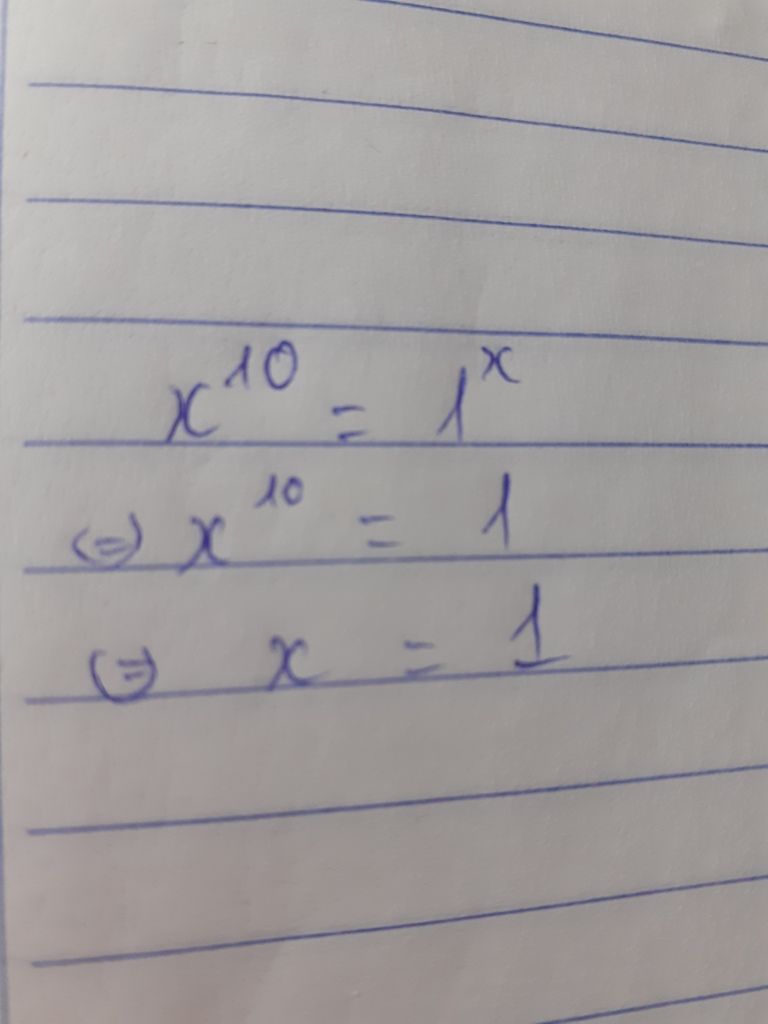 x¹⁰ = 1ˣ
(=) x¹⁰ = 1
(=) x = 1